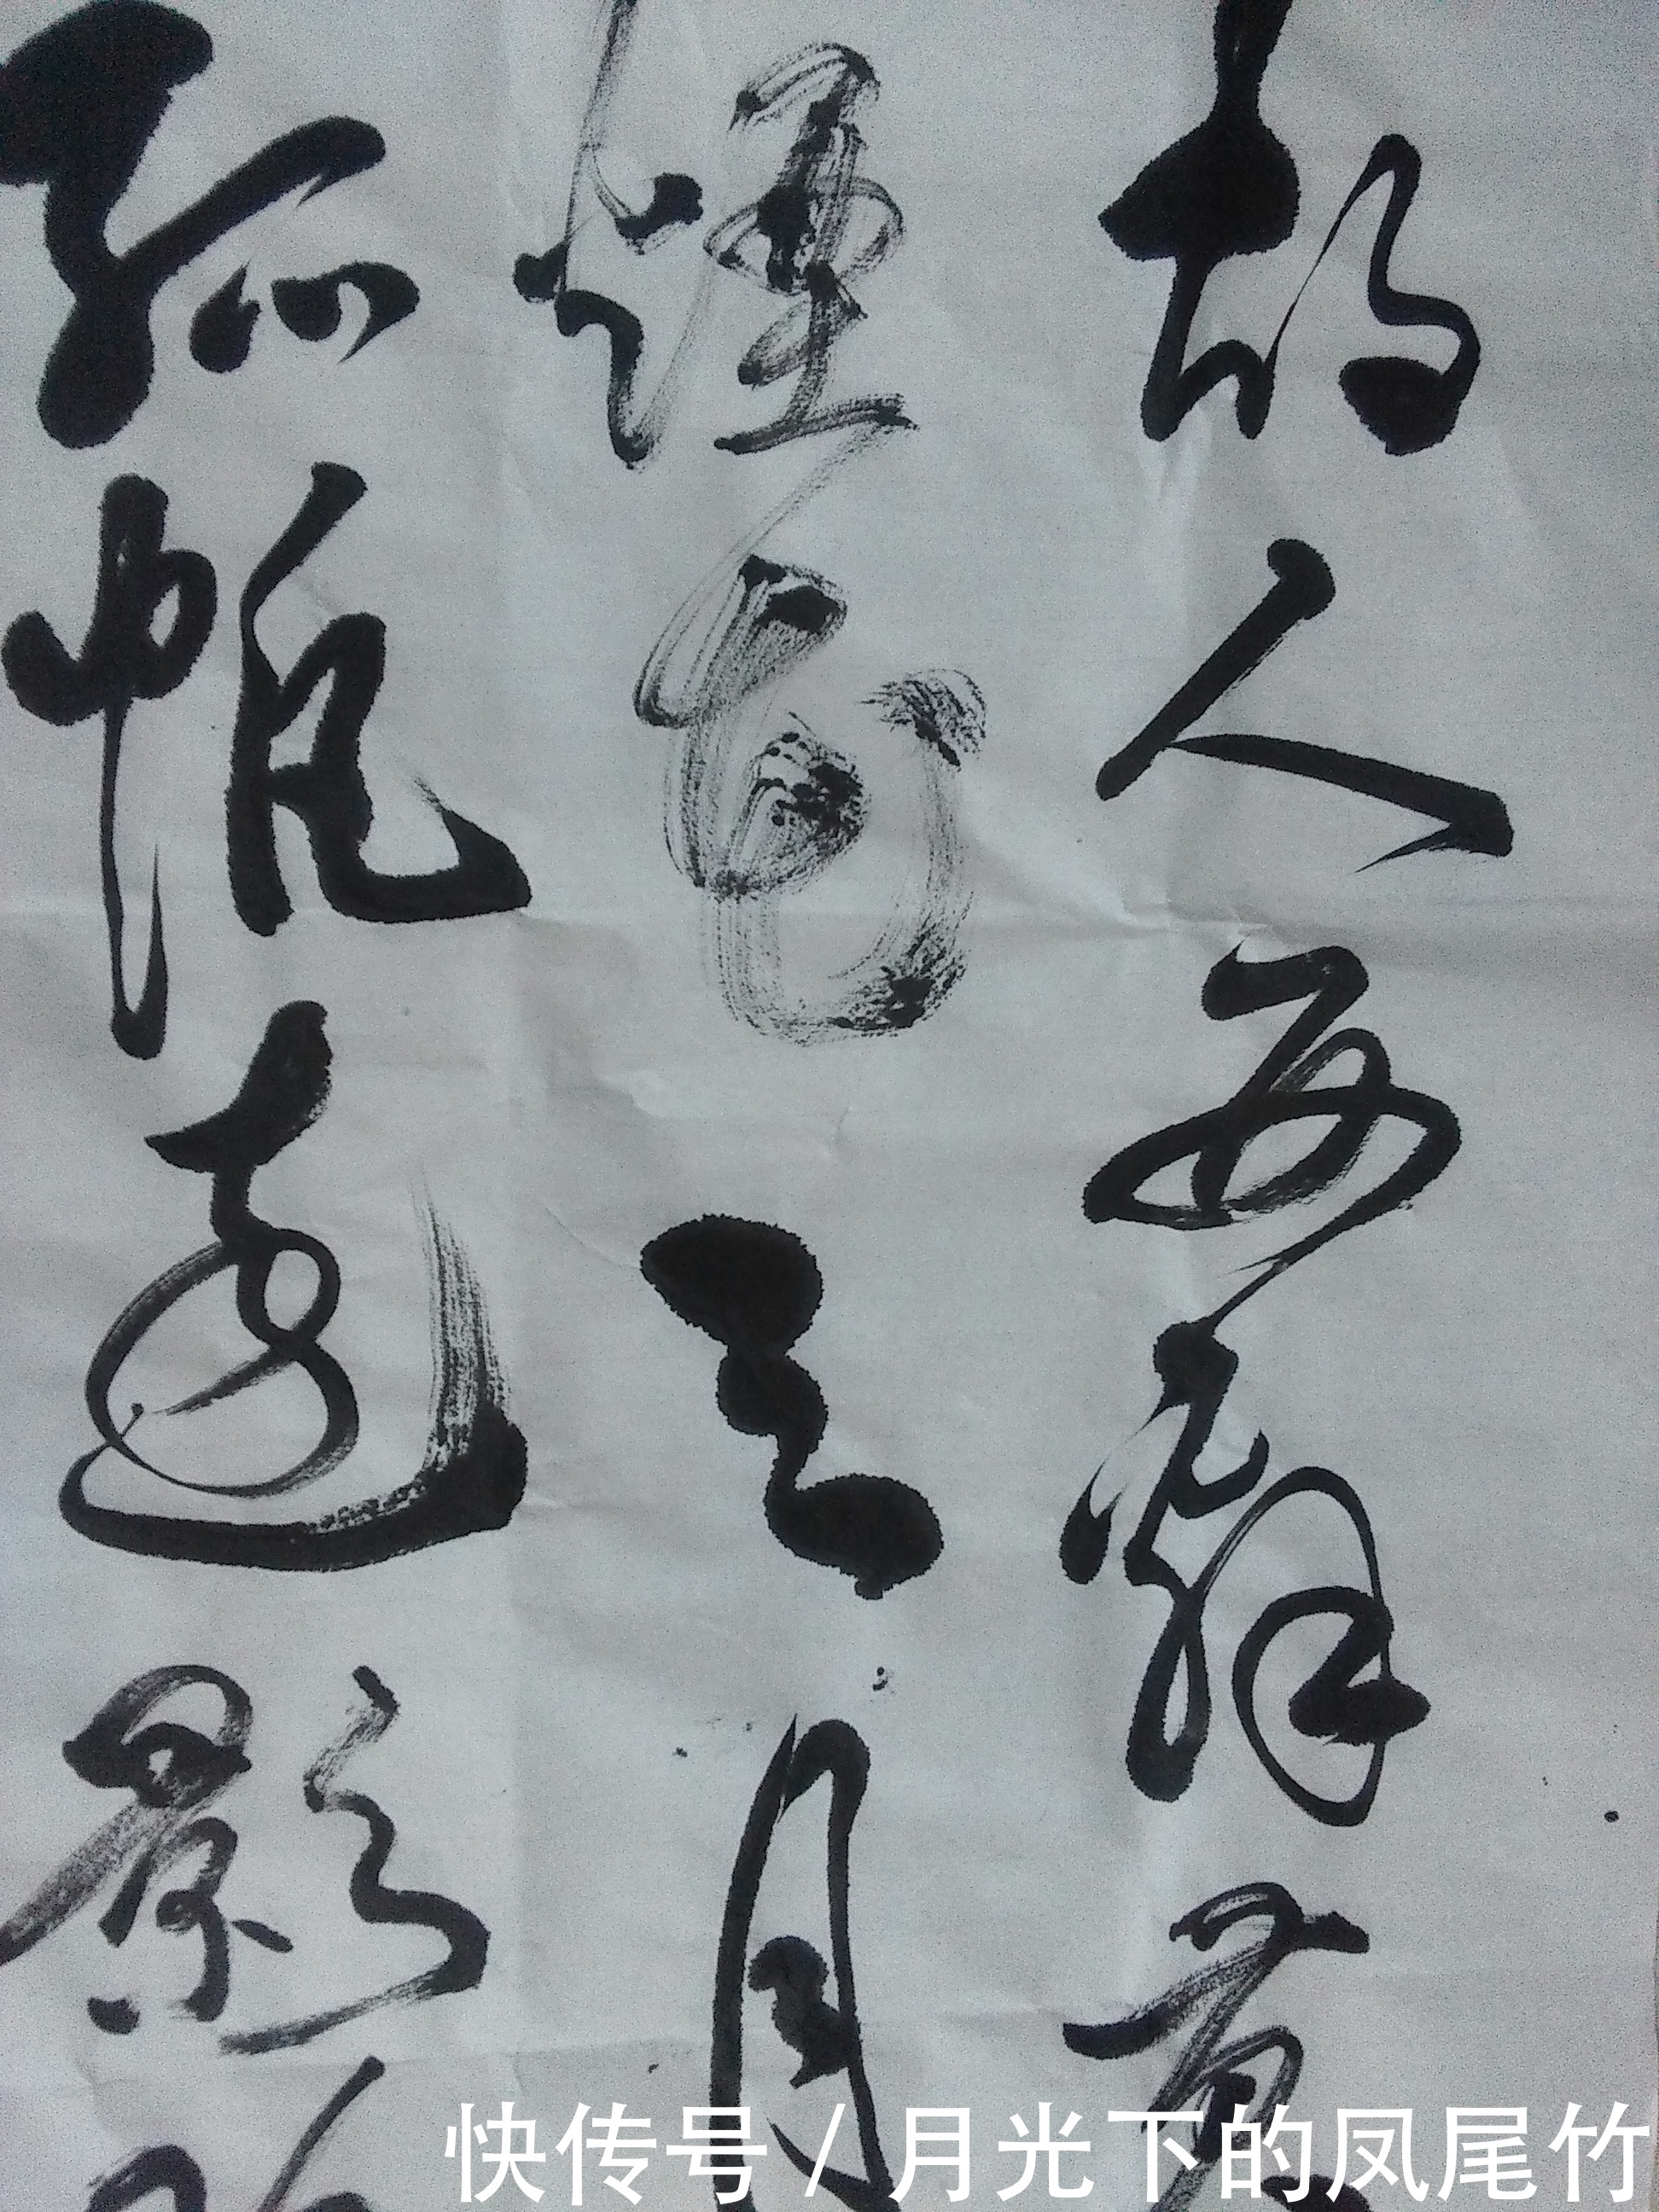 故人西辞黄
烟花三月
孤帆远影
快传号/月光下的凤尾竹